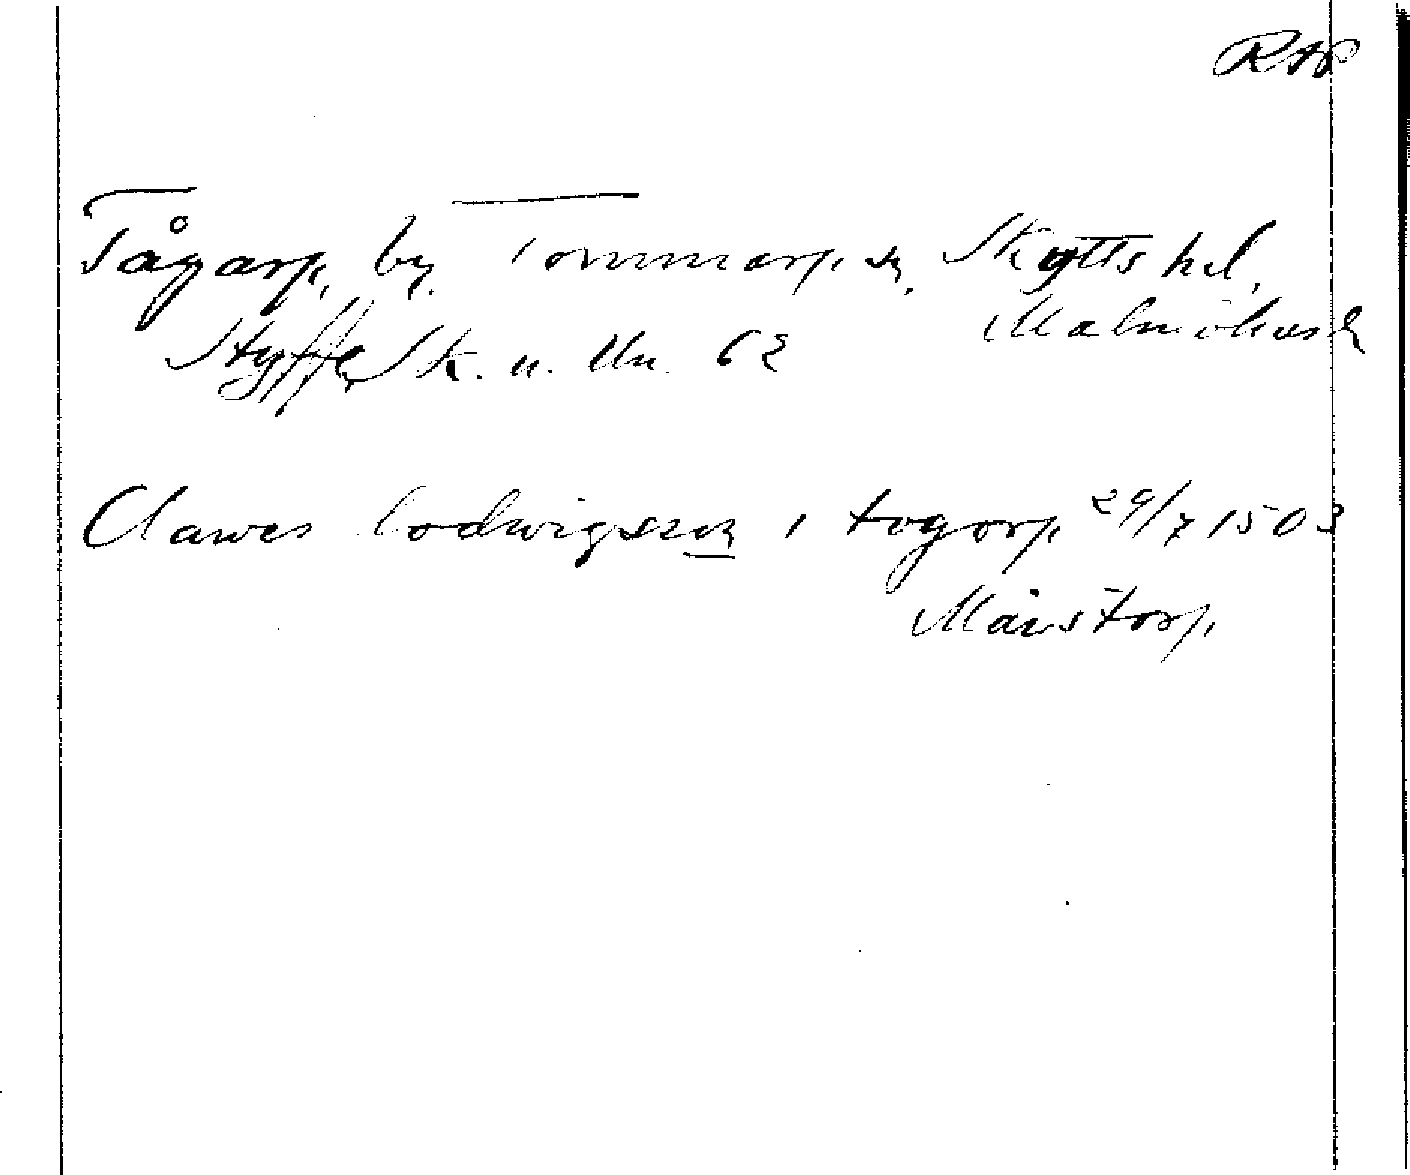 RAP
Tågarp, by. Tommarp sn, Skytts hd,
Malmöhus l
Styffe, Sk. u. Un. 62
Clawes lodwigssen i togorp 29/7 1503
Månstorp